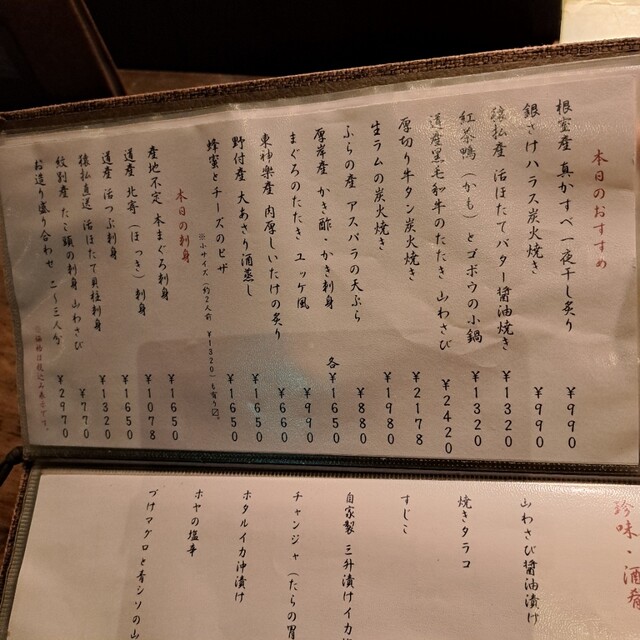 本日のおすすめ
根室産 真かすべ一夜干し炙り ￥990
銀さけハラス炭火焼き ￥990
猿払産 活ほたてバター醤油焼き ￥1320
紅茶鴨（かも）とゴボウの小鍋 ￥1320
道産黒毛和牛のたたき 山わさび ￥2420
厚切り牛タン炭火焼き ￥2178
生ラムの炭火焼き ￥1980
ふらの産 アスパラの天ぷら ￥880
厚岸産 かき酢・かき刺身 各￥1650
まぐろのたたき ユッケ風 ￥990
東神楽産 肉厚しいたけの炙り ￥660
野付産 大あさり酒蒸し ￥1650
蜂蜜とチーズのピザ ￥1650
※小サイズ（約2人前 ￥1320）も有り〼。
本日の刺身
産地不定 本まぐろ刺身 ￥1650
道産 北寄（ほっき）刺身 ￥1078
道産 活つぶ刺身 ￥1650
猿払直送 活ほたて貝柱刺身 ￥1320
紋別産 たこ頭の刺身 山わさび ￥770
お造り盛り合わせ 二〜三人分 ￥2970
珍味・酒肴
山わさび醤油漬け
焼きタラコ
すじこ
自家製 三升漬けイカ
チャンジャ（たらの胃
ホタルイカ沖漬け
ホヤの塩辛
づけマグロと青シソの山